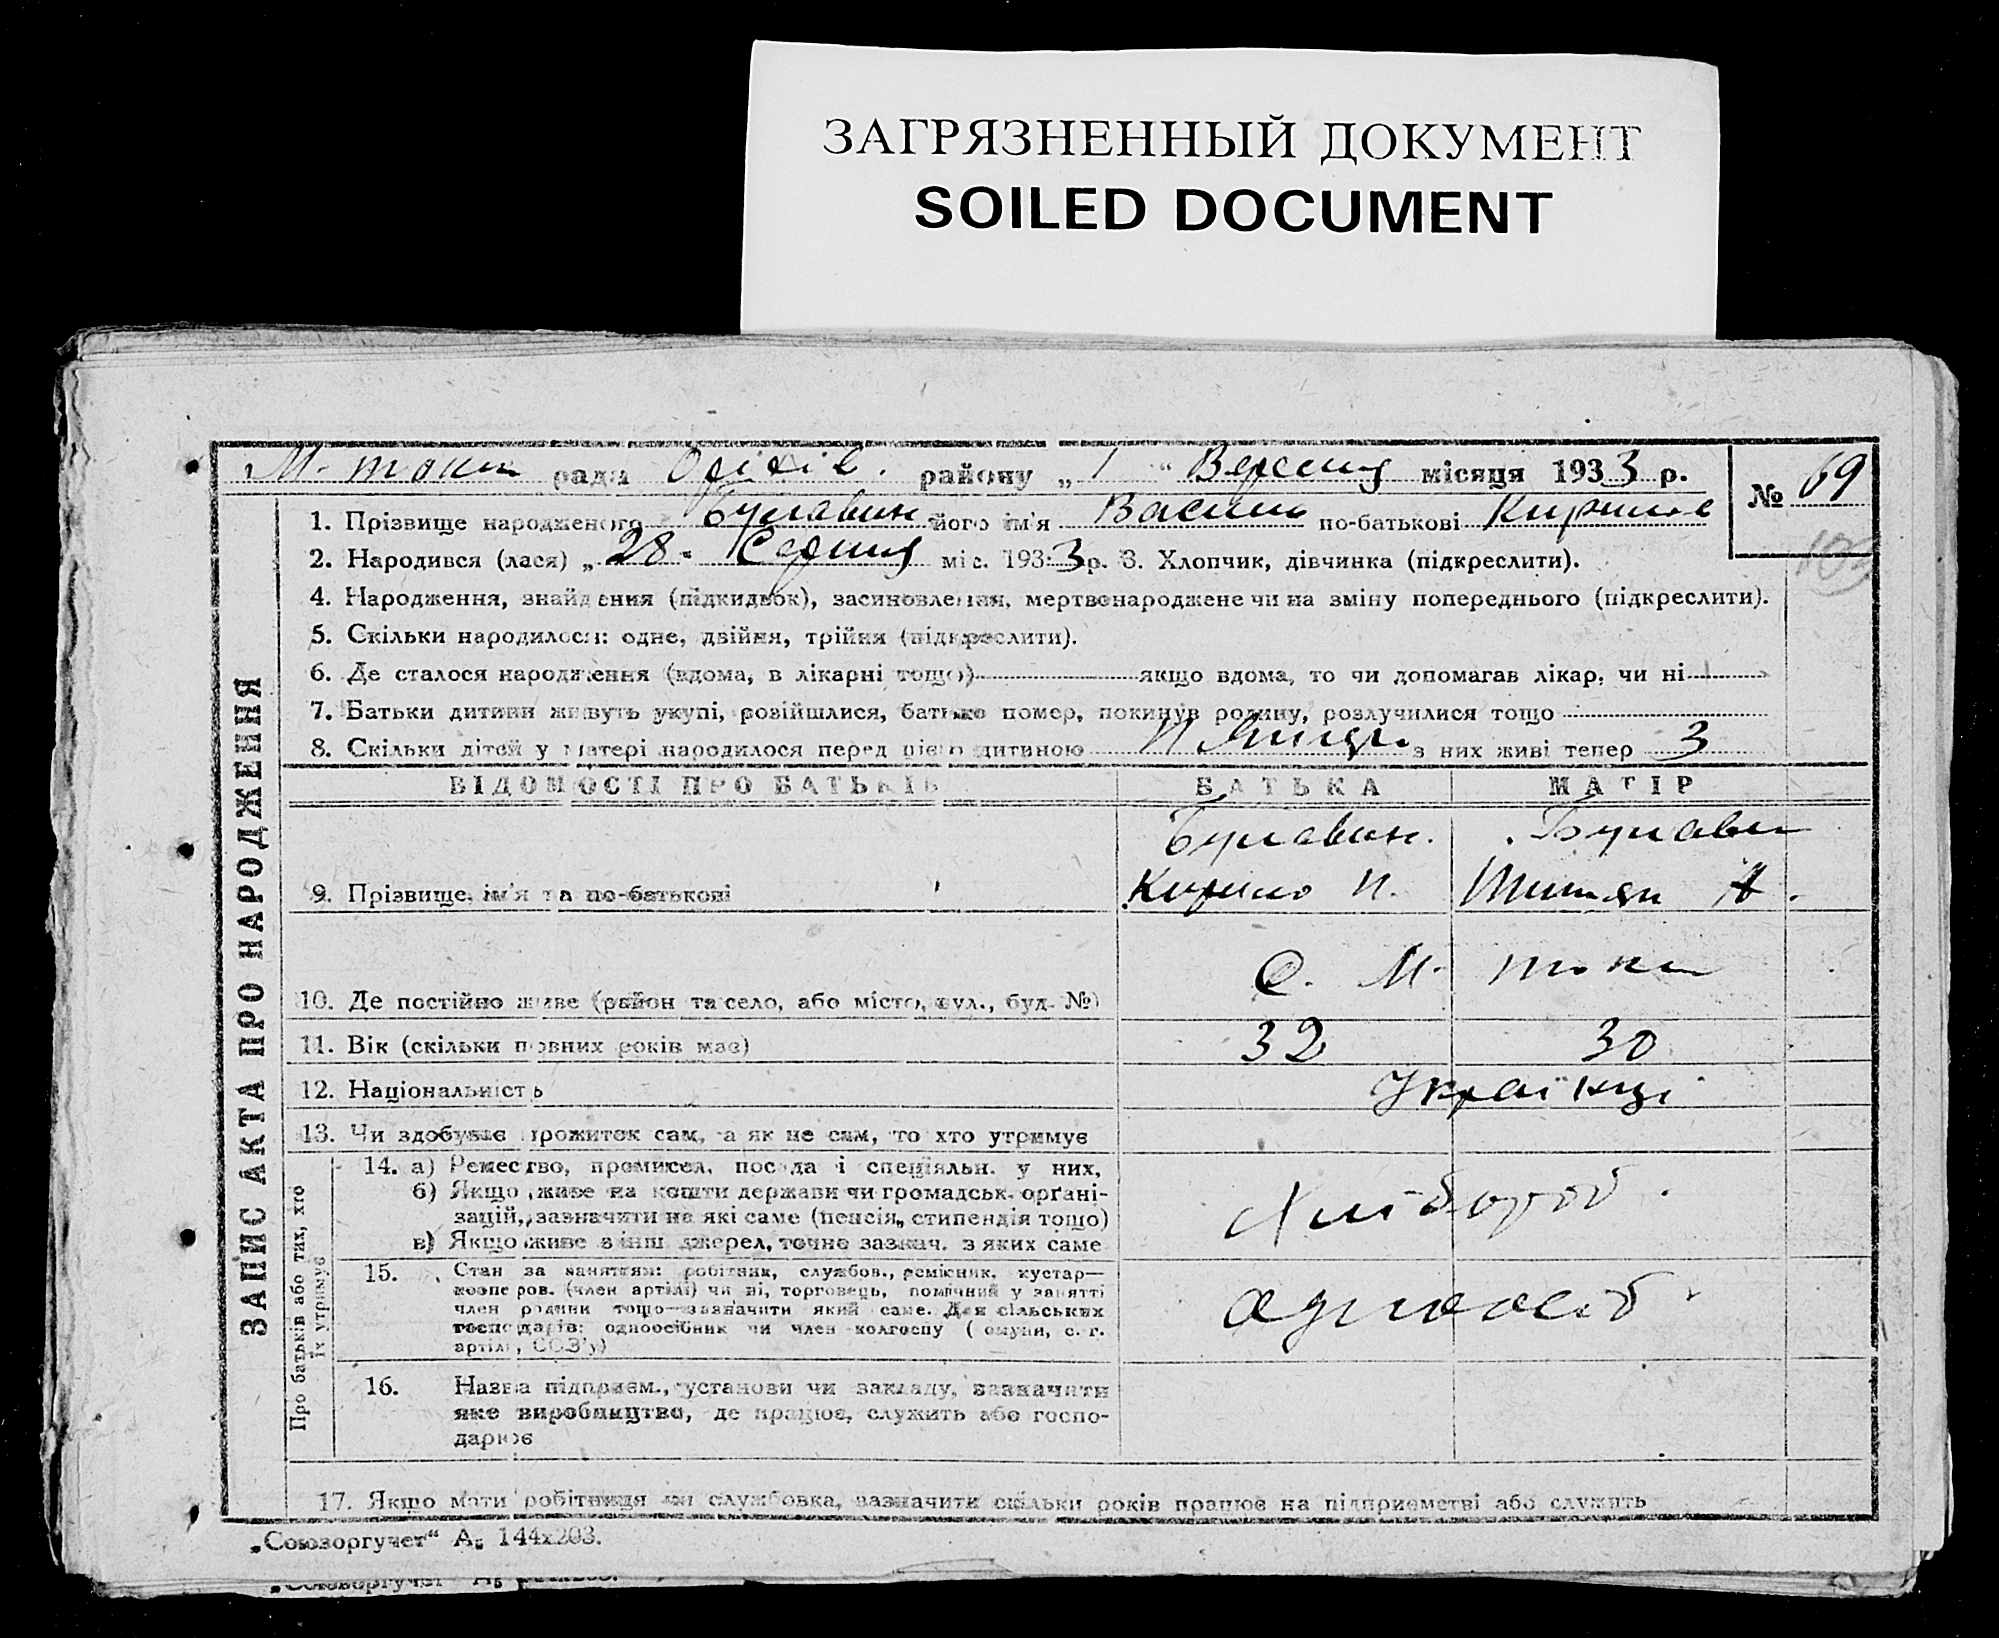 ЗАГРЯЗНЕННЫЙ ДОКУМЕНТ
SOILED DOCUMENT
М. токм рада Оріхів. району „ 1 “ Вересня місяця 1933 р.
№ 69
103
1. Прізвище народженого Булавин його ім'я Василь по-батькові Кирилов
2. Народився (лася) „ 28. Серпня міс. 1933 р. 3. Хлопчик, дівчинка (підкреслити).
4. Народження, знайдення (підкидьок), засиновлення, мертвонароджене чи на зміну попереднього (підкреслити).
5. Скільки народилося: одне, двійня, трійня (підкреслити).
6. Де сталося народження (вдома, в лікарні тощо) якщо вдома, то чи допомагав лікар, чи ні
7. Батьки дитини живуть укупі, розійшлися, батько помер, покинув родину, розлучилися тощо
8. Скільки дітей у матері народилося перед цією дитиною з них живі тепер 3
ВІДОМОСТІ ПРО БАТЬКІВ БАТЬКА МАТІР
Булавин. Булави
9. Прізвище, ім'я та по-батькові Кирило И. А.
10. Де постійно живе (район та село, або місто, вул., буд. №) С. М. токм
11. Вік (скільки повних років має) 32 30
12. Національність Українці
13. Чи здобуває прожиток сам, а як не сам, то хто утримує
14. а) Ремество, промисел, посада і спеціяльн. у них,
б) Якщо живе на кошти держави чи громадськ. орґані-
зацій, зазначити на які саме (пенсія, стипендія тощо)
в) Якщо живе з інш джерел, точно зазнач. з яких саме
Хлібороб.
15. Стан за заняттям: робітник, службов., ремісник, кустар—
кооперов. (член артілі) чи ні, торговець, помічний у занятті
член родини тощо—зазначити який саме. Для сільських
господарів: одноосібник чи член колгоспу ( омуни, с. г.
артілі, СОЗ'у)
одноосіб
16. Назва підприєм., установи чи закладу, зазначити
яке виробництво, де працює, служить або госпо-
дарює
17. Якщо мати робітниця чи службовка, зазначити скільки років працює на підприємстві або служить
ЗАПИС АКТА ПРО НАРОДЖЕННЯ
Про батьків або тих, хто
їх утримує
„Союзоргучет“ А₅ 144х203.
„Союзоргучет“ А₅